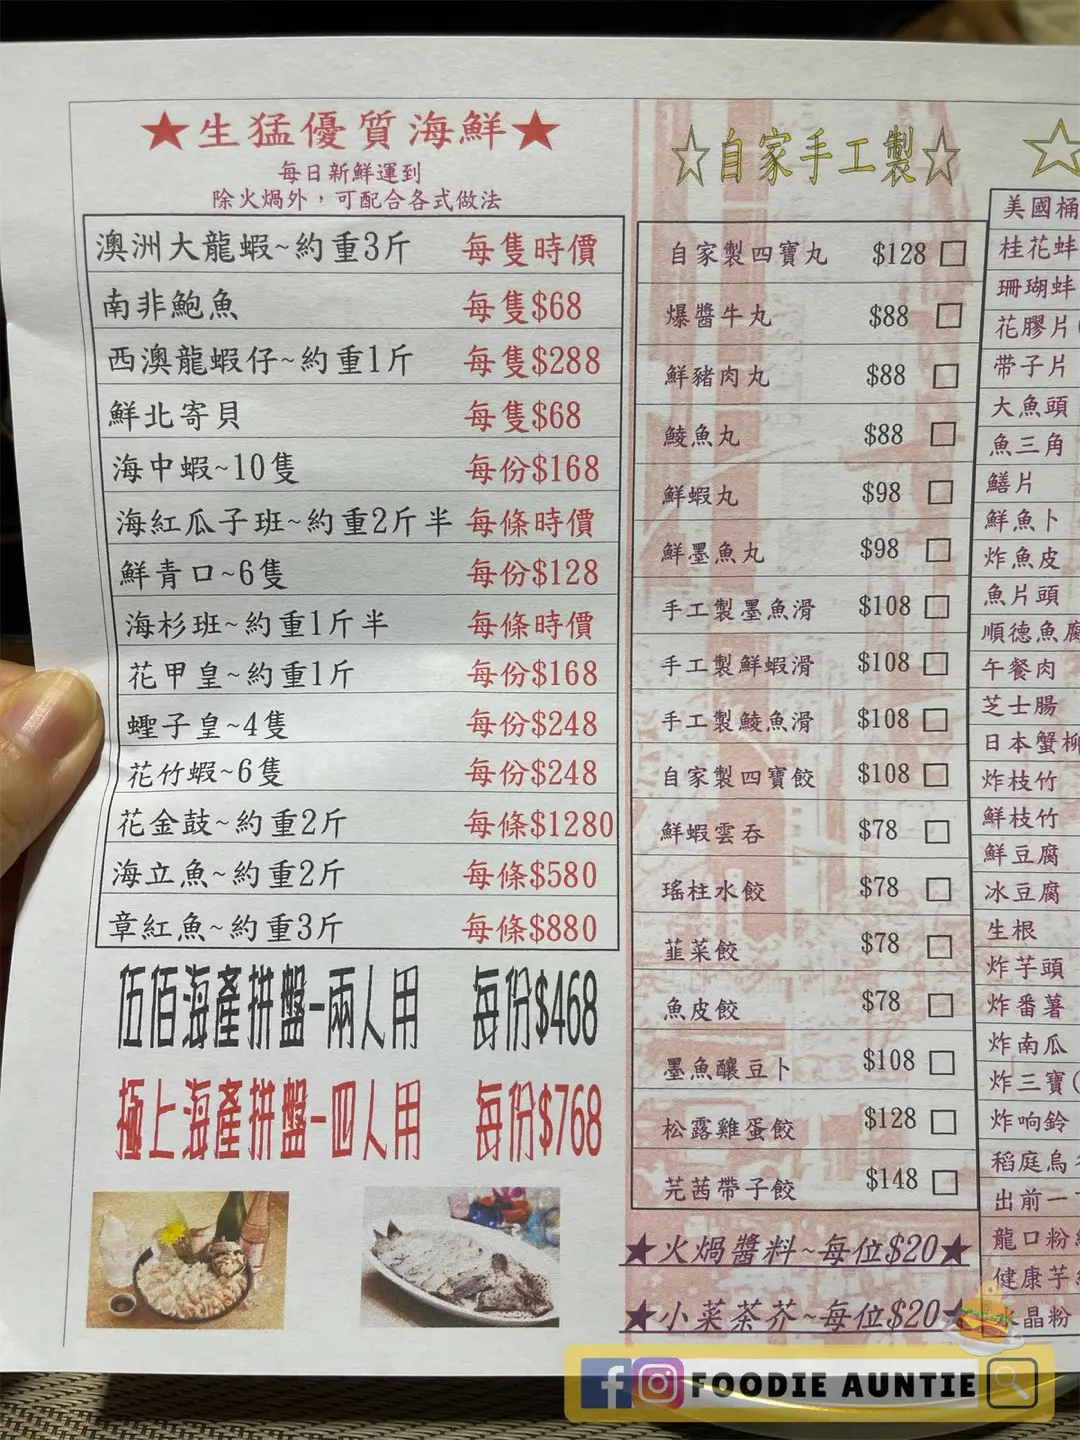 ★生猛優質海鮮★
每日新鮮運到
除火焗外，可配合各式做法
澳洲大龍蝦~約重3斤 每隻時價
南非鮑魚 每隻$68
西澳龍蝦仔~約重1斤 每隻$288
鮮北寄貝 每隻$68
海中蝦~10隻 每份$168
海紅瓜子班~約重2斤半 每條時價
鮮青口~6隻 每份$128
海杉班~約重1斤半 每條時價
花甲皇~約重1斤 每份$168
蟶子皇~4隻 每份$248
花竹蝦~6隻 每份$248
花金鼓~約重2斤 每條$1280
海立魚~約重2斤 每條$580
章紅魚~約重3斤 每條$880
伍佰海產拼盤-兩人用 每份$468
極上海產拼盤-四人用 每份$768
☆自家手工製☆
自家製四寶丸 $128
爆醬牛丸 $88
鮮豬肉丸 $88
鯪魚丸 $88
鮮蝦丸 $98
鮮墨魚丸 $98
手工製墨魚滑 $108
手工製鮮蝦滑 $108
手工製鯪魚滑 $108
自家製四寶餃 $108
鮮蝦雲吞 $78
瑤柱水餃 $78
韮菜餃 $78
魚皮餃 $78
墨魚釀豆卜 $108
松露雞蛋餃 $128
芫茜帶子餃 $148
★火焗醬料~每位$20★
★小菜茶芥~每位$20★
☆
美國桶
桂花蚌
珊瑚蚌
花膠片
帶子片
大魚頭
魚三角
鱔片
鮮魚卜
炸魚皮
魚片頭
順德魚腐
午餐肉
芝士腸
日本蟹柳
炸枝竹
鮮枝竹
鮮豆腐
冰豆腐
生根
炸芋頭
炸番薯
炸南瓜
炸三寶(
炸响鈴
稻庭烏
出前一
龍口粉
健康芋
水晶粉
FOODIE AUNTIE